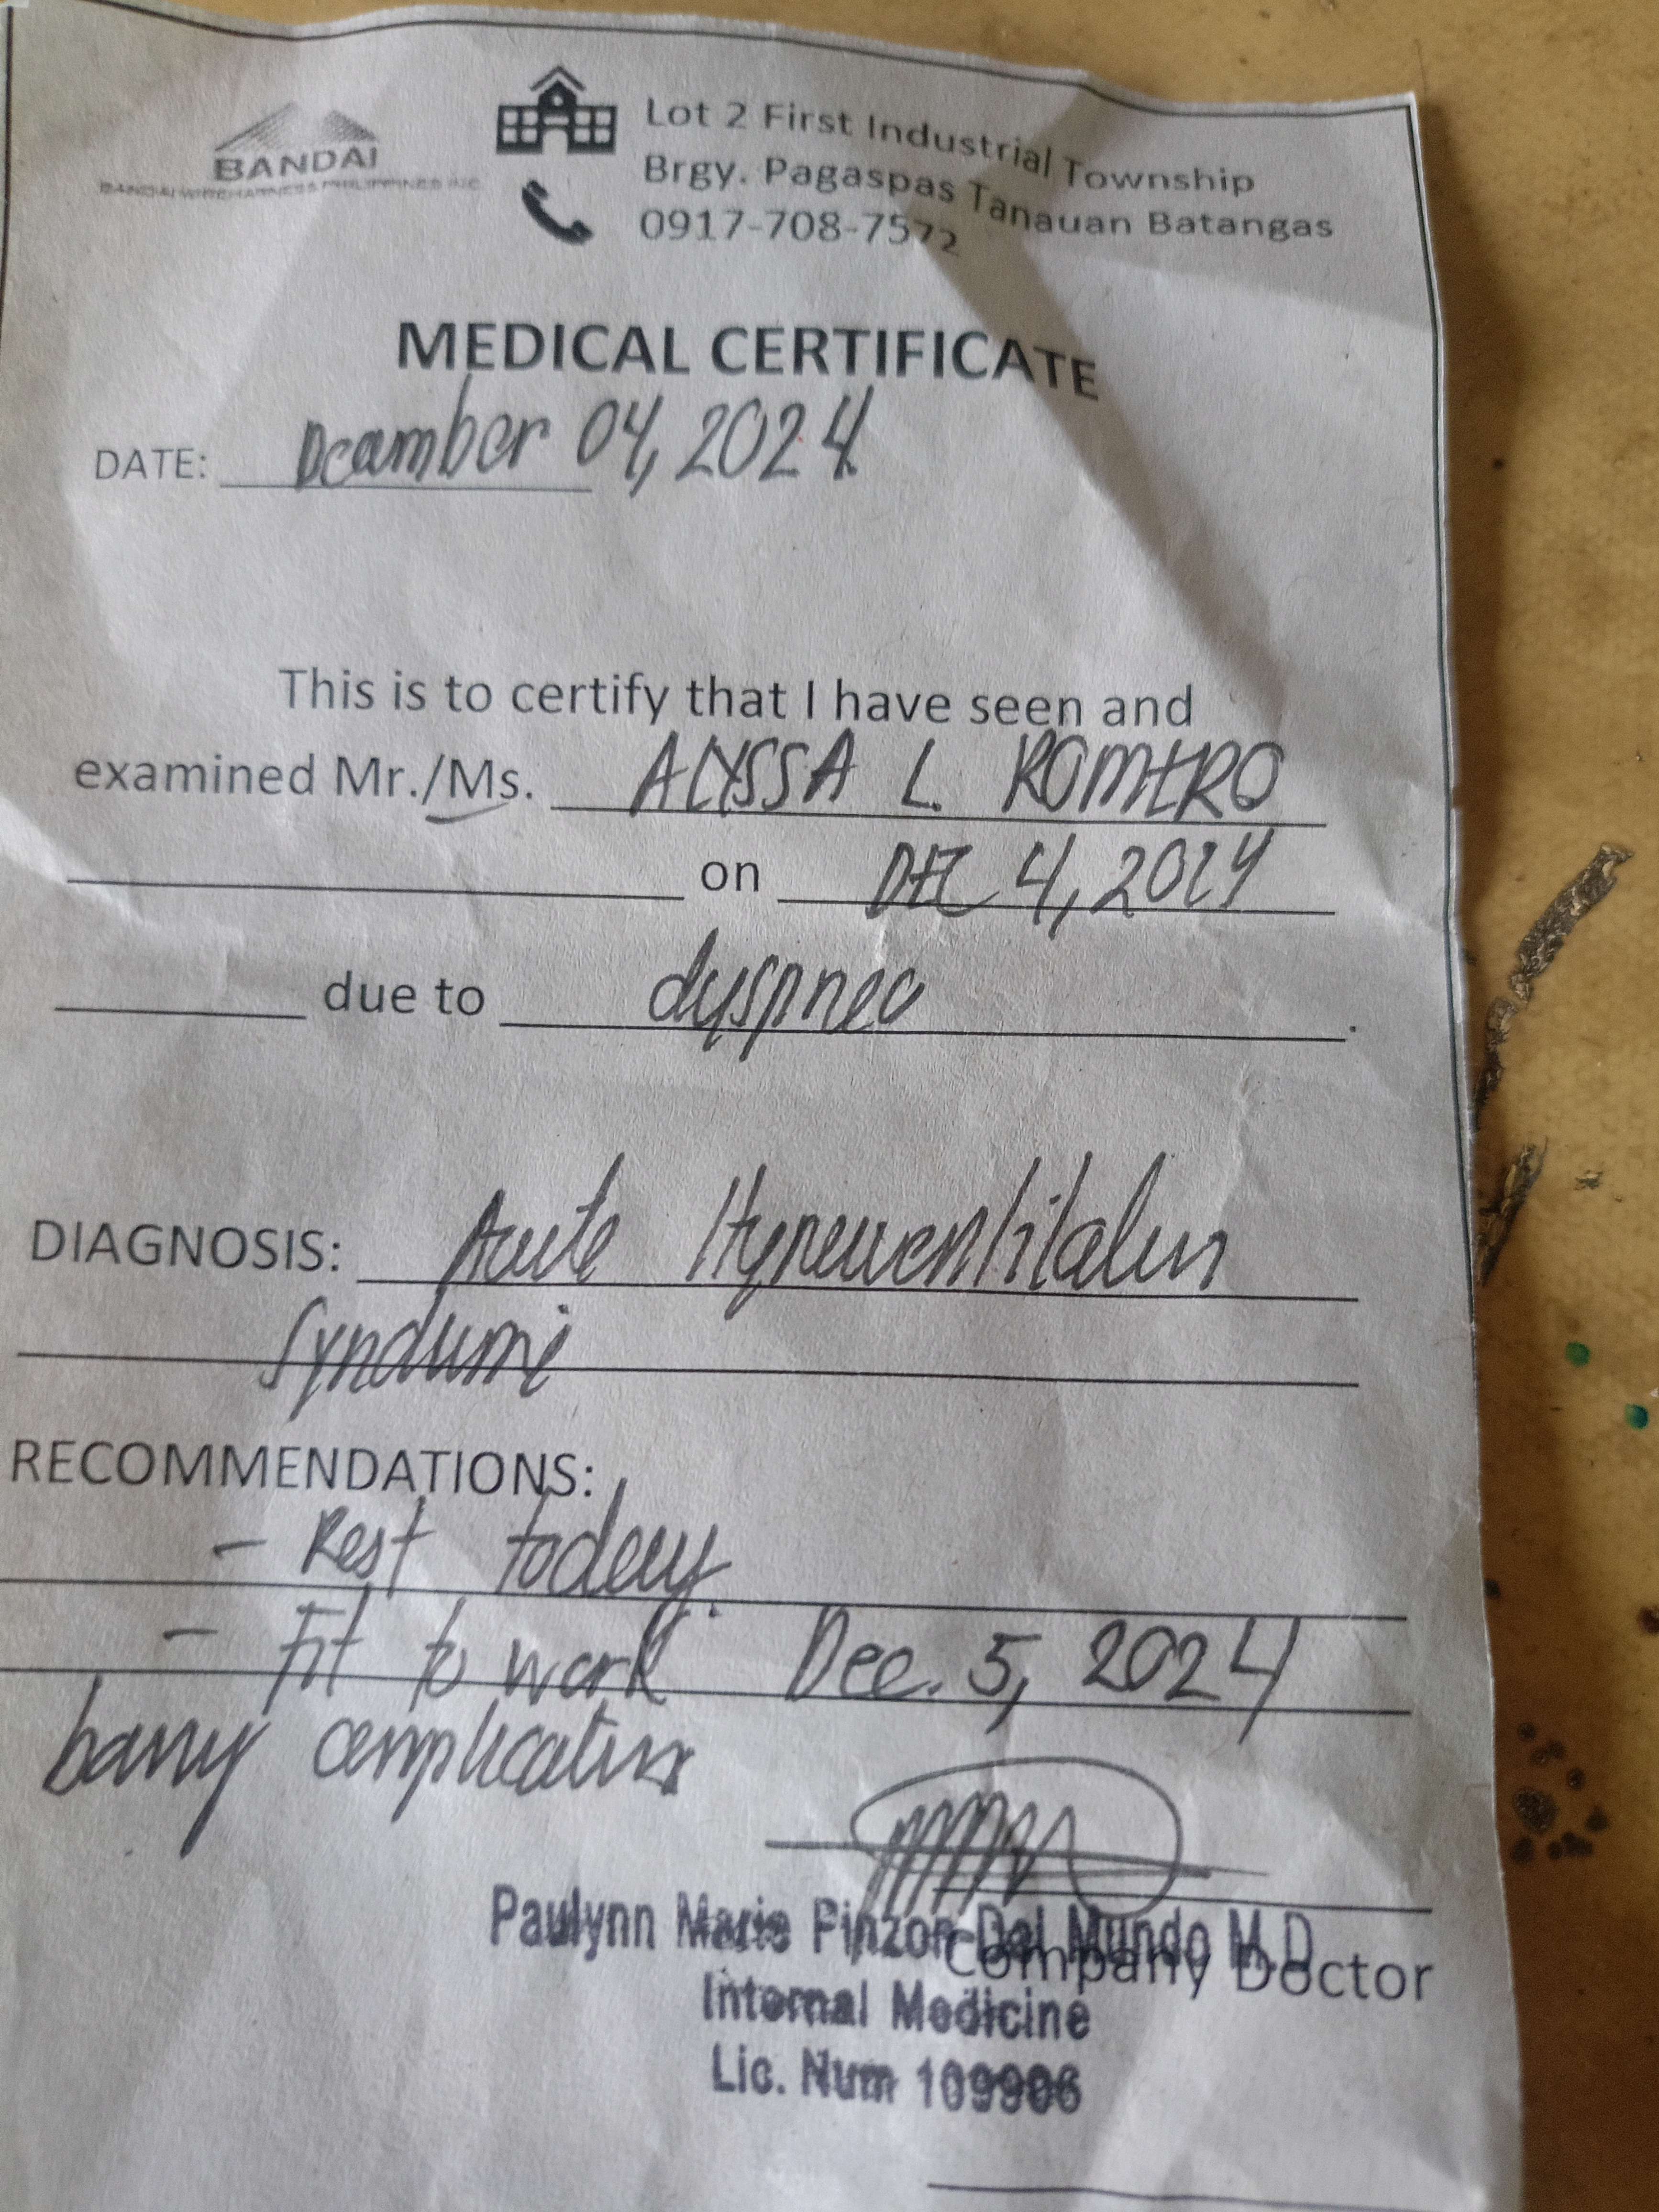 BANDAI
BANDAI WIREHARNESS PHILIPPINES INC.
Lot 2 First Industrial Township
Brgy. Pagaspas Tanauan Batangas
0917-708-7572
MEDICAL CERTIFICATE
DATE: December 04, 2024
This is to certify that I have seen and
examined Mr./Ms. ALYSSA L. ROMERO
on DEC 4, 2024
due to dyspnea.
DIAGNOSIS: Acute Hyperventilation
Syndrome
RECOMMENDATIONS:
- Rest today.
- Fit to work Dec. 5, 2024
barring complications
Paulynn Marie Pinzon-Del Mundo M.D
Company Doctor
Internal Medicine
Lic. Num 109906